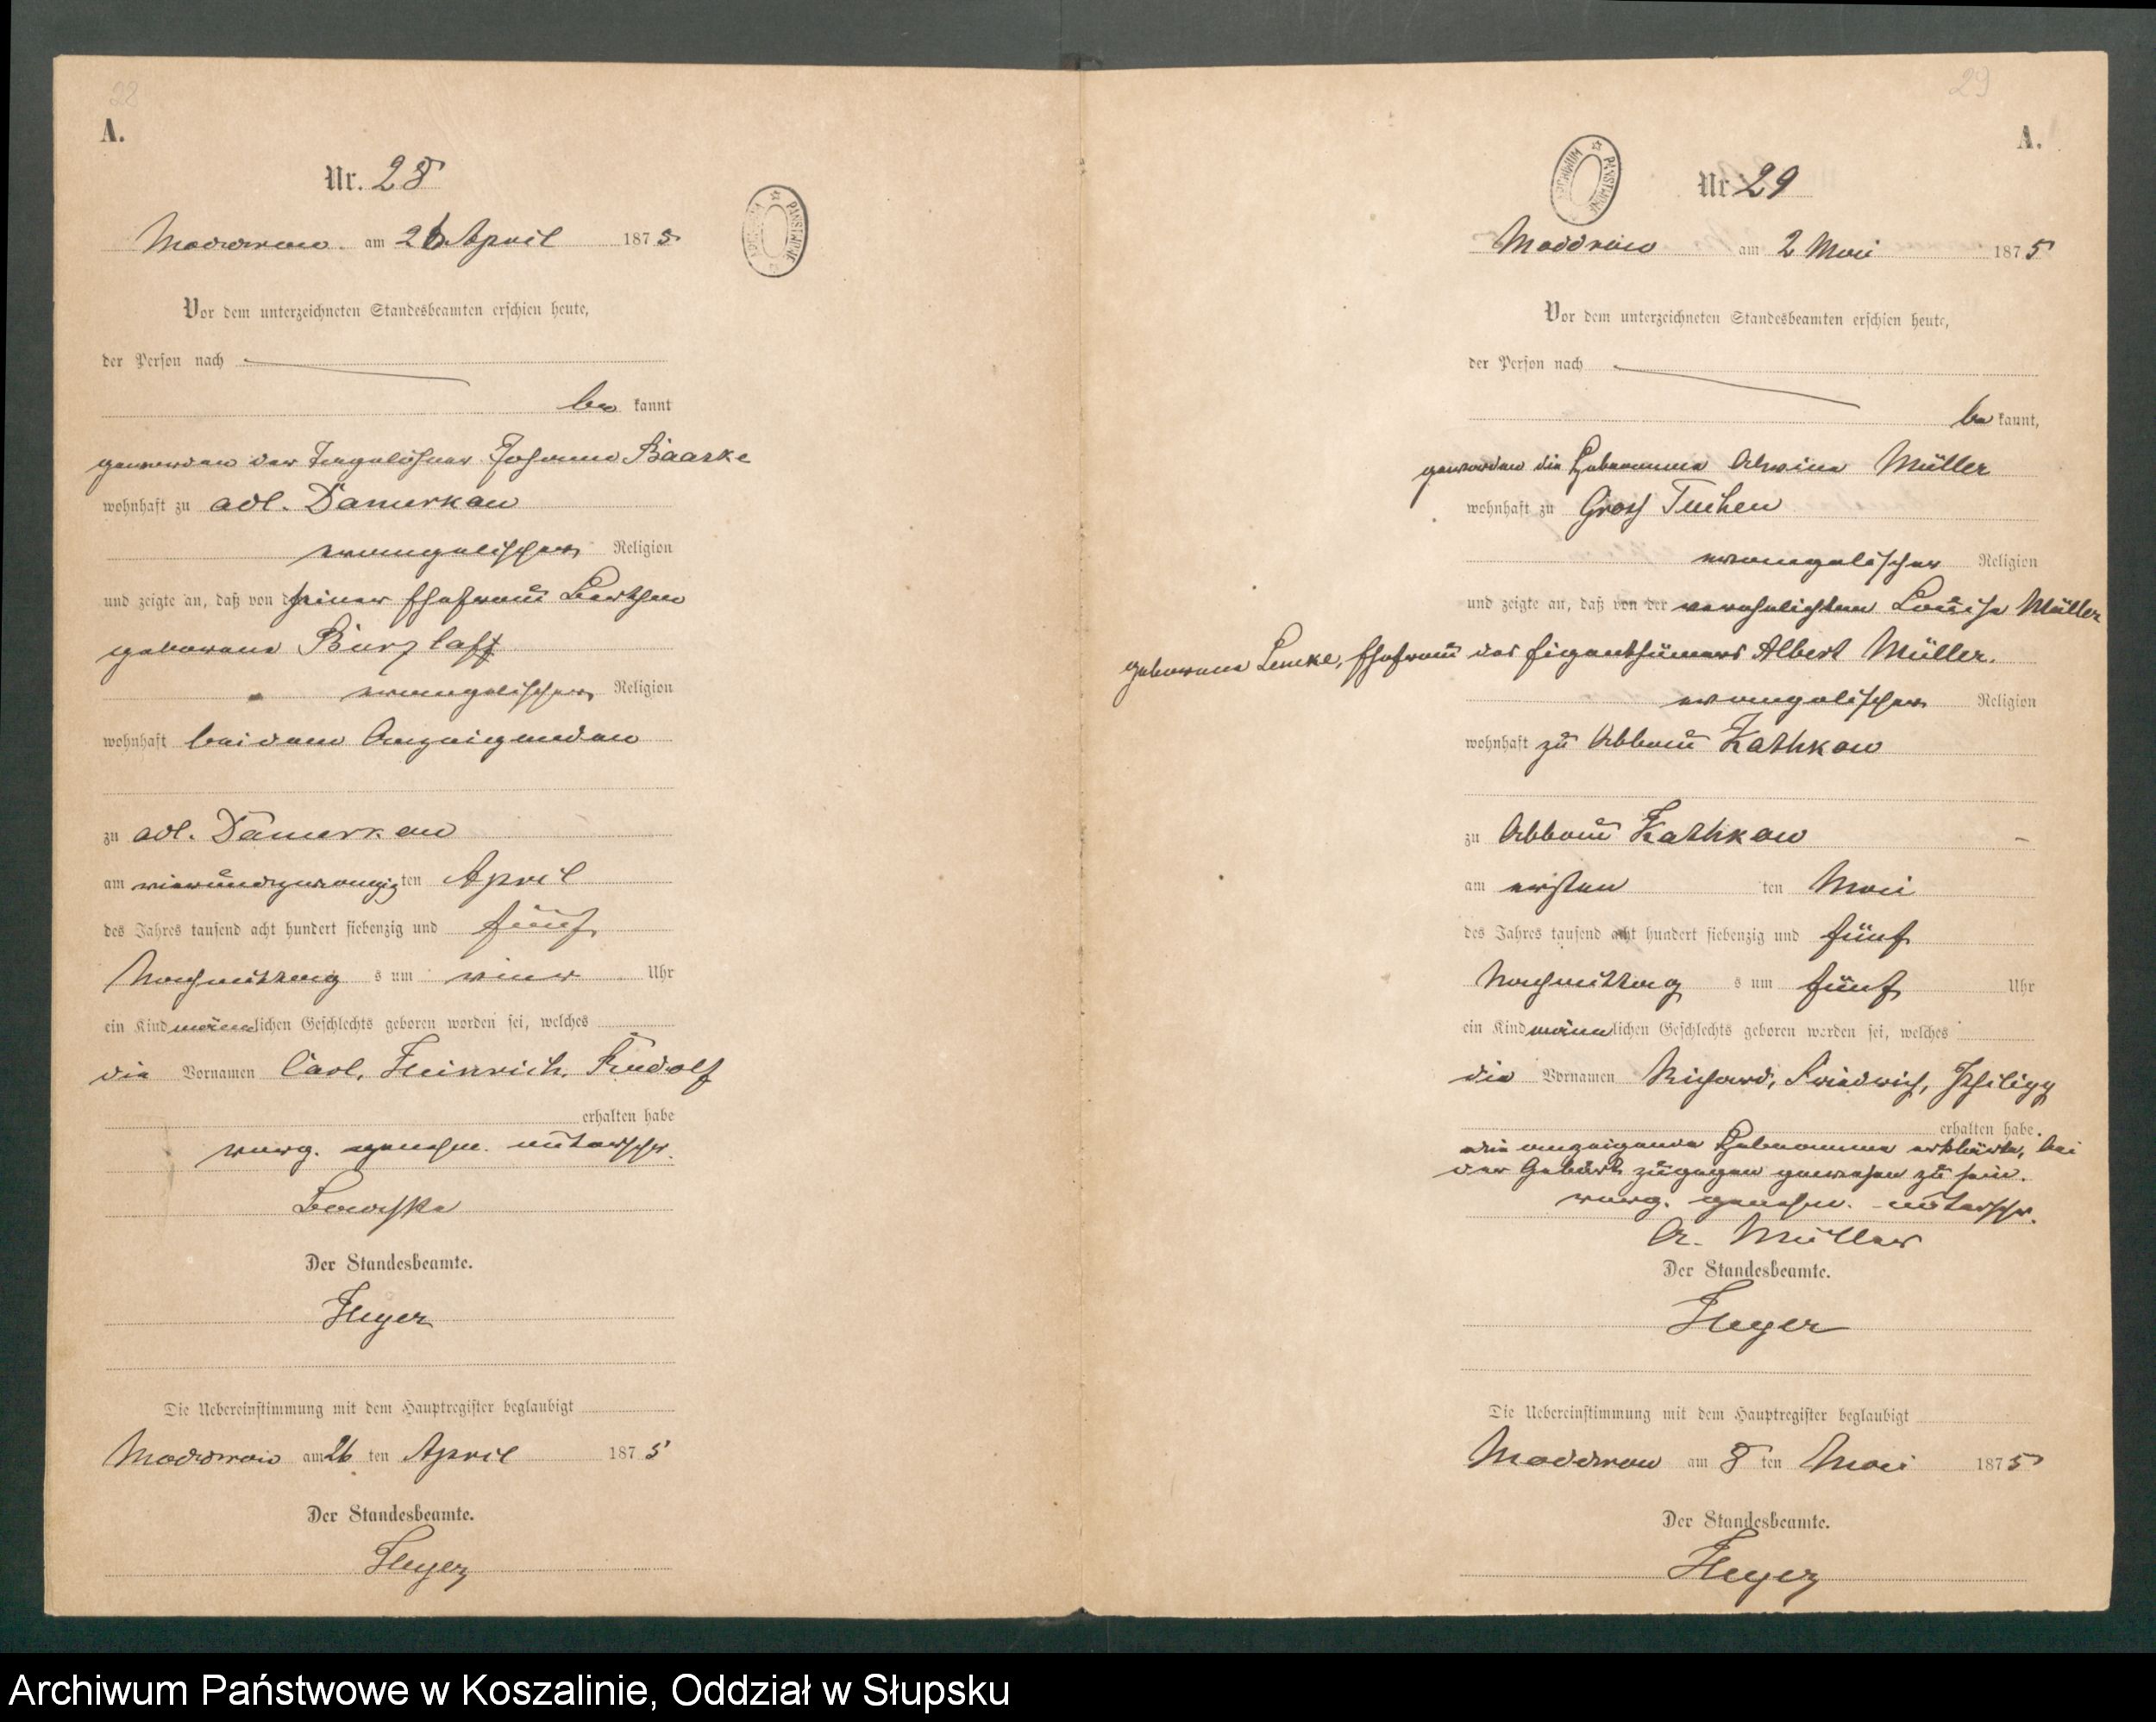 28
A.
Nr. 28
Moddrow am 26 April 1875
Vor dem unterzeichneten Standesbeamten erschien heute,
der Person nach
be kannt
geworden der Tagelöhner Johann Baaske
wohnhaft zu adl. Damerkow
evangelischer Religion
und zeigte an, daß von d seiner Ehefrau Berthe
geborene Burzlaff
evangelischer Religion
wohnhaft bei dem Anzeigenden
zu adl. Damerkow
am vierundzwanzigten April
des Jahres tausend acht hundert siebenzig und fünf
Nachmittag s um vier Uhr
ein Kind männlichen Geschlechts geboren worden sei, welches
die Vornamen Carl, Heinrich, Rudolf
erhalten habe
vorg. genehm. unterschr.
Baaske
Der Standesbeamte.
Heyer
Die Uebereinstimmung mit dem Hauptregister beglaubigt
Moddrow am 26 ten April 1875
Der Standesbeamte.
Heyer
29
A.
Nr 29
Moddrow am 2 Mai 1875
Vor dem unterzeichneten Standesbeamten erschien heute,
der Person nach
be kannt,
geworden die Hebeamme Alwine Müller
wohnhaft zu Groß Tuchen
evangelischer Religion
und zeigte an, daß von der verehelichten Louise Müller
geborene Lemke, Ehefrau des Eigenthümers Albert Müller.
evangelischer Religion
wohnhaft zu Abbau Kathkow
zu Abbau Kathkow
am ersten ten Mai
des Jahres tausend acht hundert siebenzig und fünf
Nachmittag s um fünf Uhr
ein Kind männlichen Geschlechts geboren worden sei, welches
die Vornamen Richard, Friedrich, Philipp
erhalten habe.
die anzeigende Hebeamme erklärte, bei
der Geburt zugegen gewesen zu sein.
vorg. genehm. unterschr.
A. Müller
Der Standesbeamte.
Heyer
Die Uebereinstimmung mit dem Hauptregister beglaubigt
Moddrow am 8 ten Mai 1875
Der Standesbeamte.
Heyer
Archiwum Państwowe w Koszalinie, Oddział w Słupsku